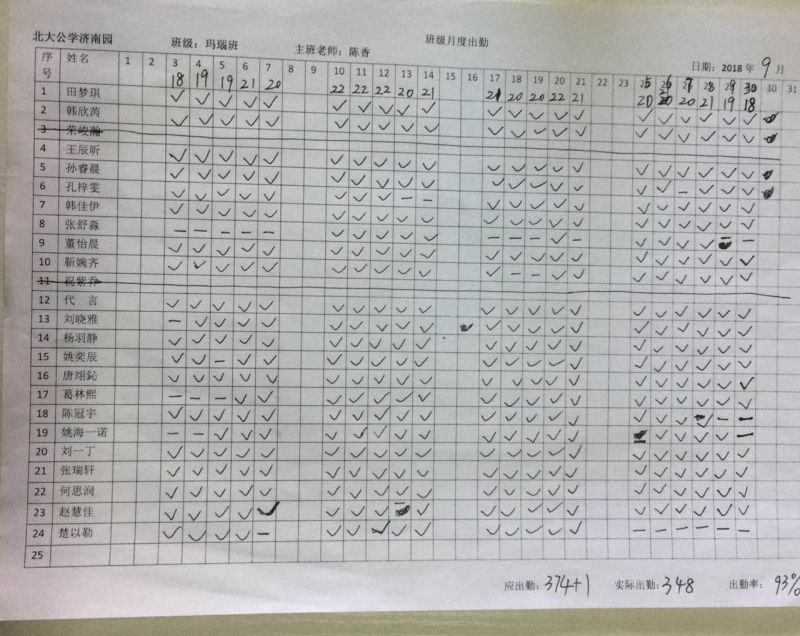 北大公学济南园
班级：玛瑙班 主班老师：陈香 班级月度出勤 日期：2018 年 9 月
序号 姓名 1 2 3 4 5 6 7 8 9 10 11 12 13 14 15 16 17 18 19 20 21 22 23 30 31
18 19 19 21 20 22 22 22 20 21 21 20 20 22 21 20 20 21 19 18
1 田梦琪
2 韩欣芮
3 荣峻瀚
4 王辰昕
5 孙睿晨
6 孔梓雯
7 韩佳伊
8 张舒淼
9 董怡晨
10 靳婉齐
11 祝紫乔
12 代 言
13 刘晓雅
14 杨羽静
15 姚奕辰
16 唐翊鈊
17 葛林熙
18 陈冠宇
19 姚海一诺
20 刘一丁
21 张瑞轩
22 何思润
23 赵慧佳
24 楚以勒
25
应出勤：374+1 实际出勤：348 出勤率：93%